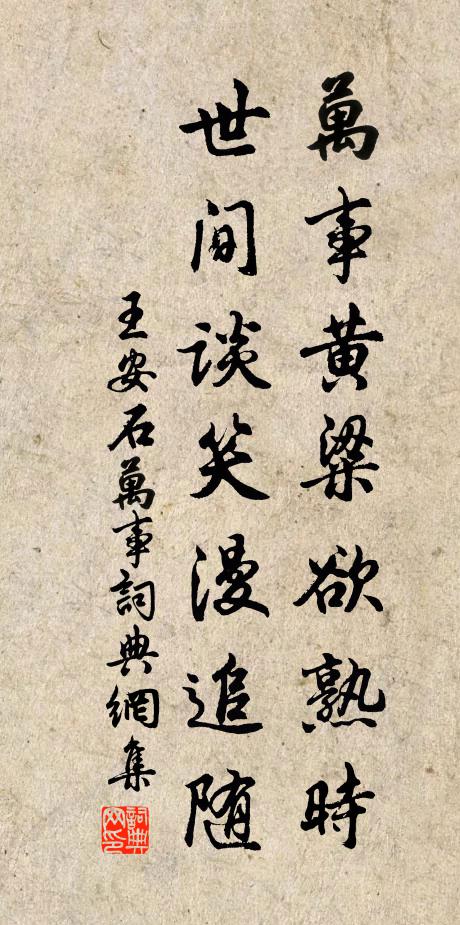 萬事黄粱欲熟時
世间谈笑漫追随
王安石萬事詞典網集
詞典網印